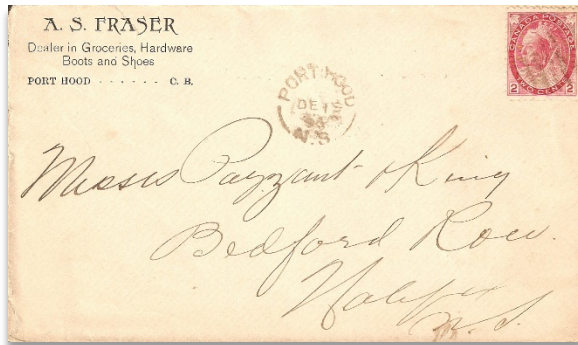 A. S. FRASER
Dealer in Groceries, Hardware
Boots and Shoes
PORT HOOD · · · · · · C. B.
CANADA POSTAGE
2 TWO CENTS 2
PORT HOOD
DE 15
N.S.
Messrs Payzant & King
Bedford Row.
Halifax
N.S.